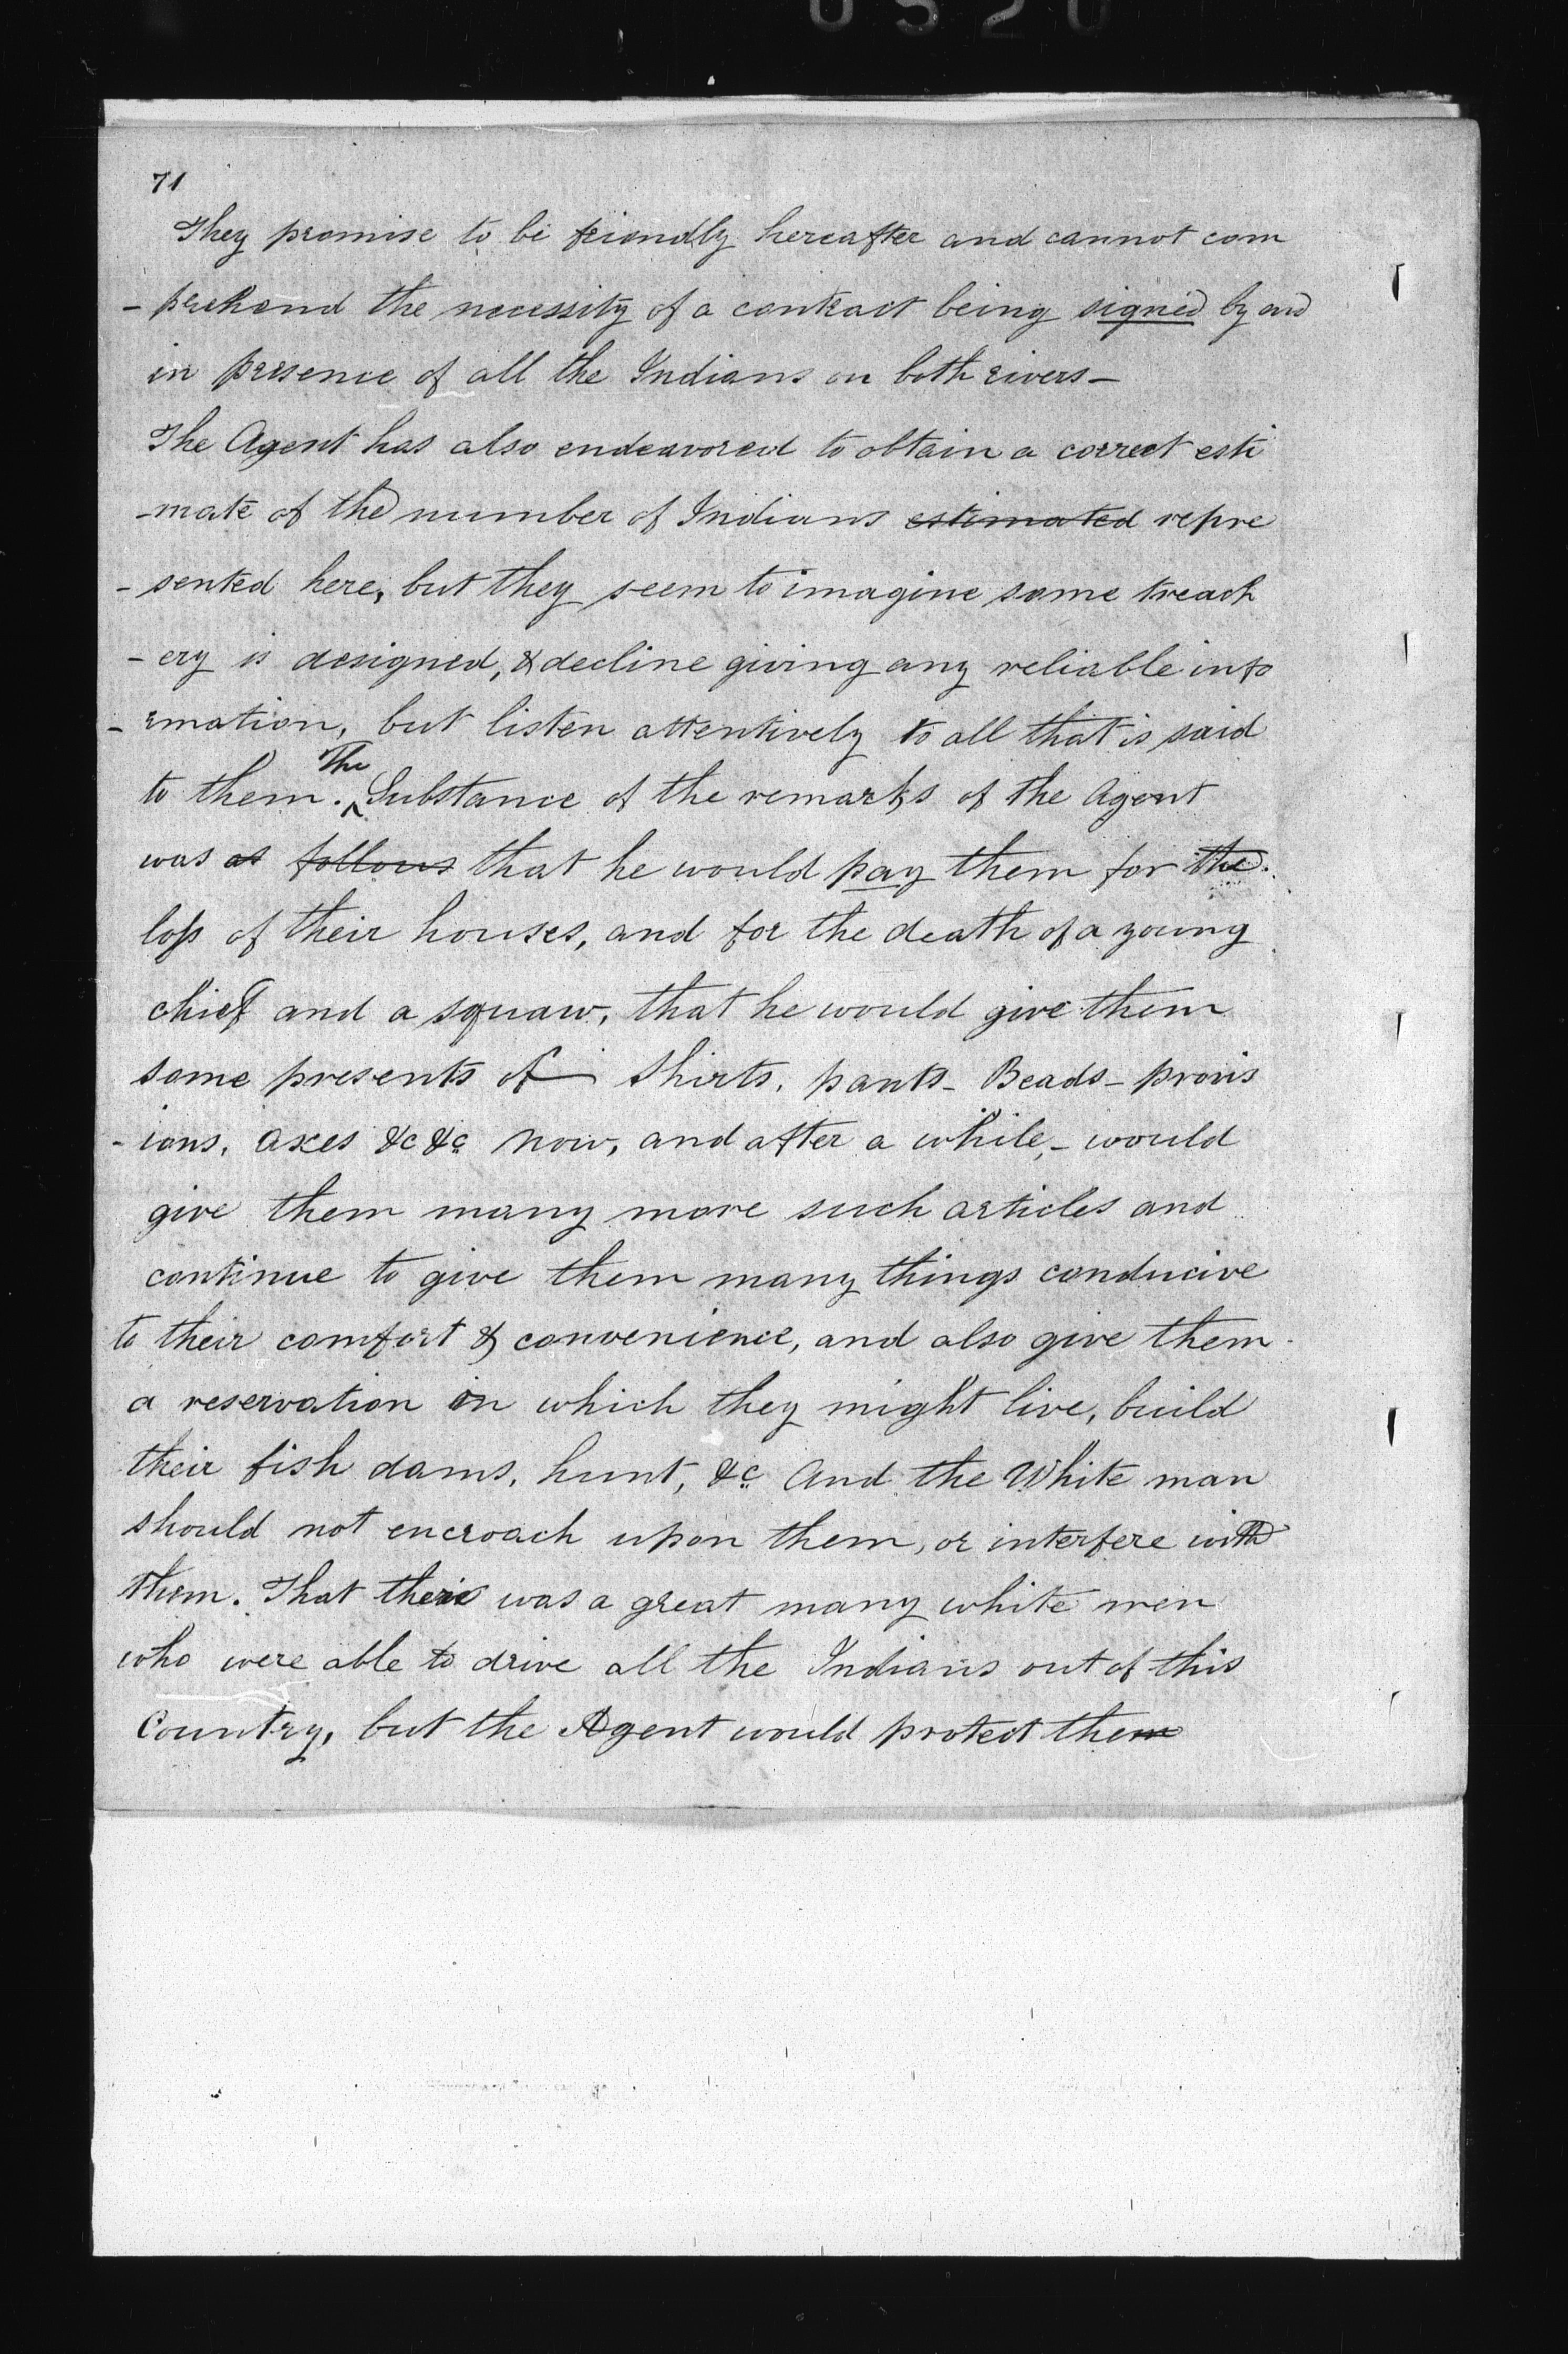 71
They promise to be friendly hereafter and cannot com
- prehend the necessity of a contract being signed by and
in presence of all the Indians on both rivers -
The Agent has also endeavored to obtain a correct esti
- mate of the number of Indians estimated repre
- sented here, but they seem to imagine some treach
- ery is designed, & decline giving any reliable info
- rmation, but listen attentively to all that is said
to them. The Substance of the remarks of the Agent
was as follows that he would pay them for the
loss of their houses, and for the death of a young
chief and a squaw, that he would give them
some presents of Shirts, pants - Beads - provis
- ions, axes &c &c now, and after a while, - would
give them many more such articles and
continue to give them many things conducive
to their comfort & convenience, and also give them
a reservation in which they might live, build
their fish dams, hunt, &c And the White man
should not encroach upon them, or interfere with
them. That there was a great many white men
who were able to drive all the Indians out of this
Country, but the Agent would protect them